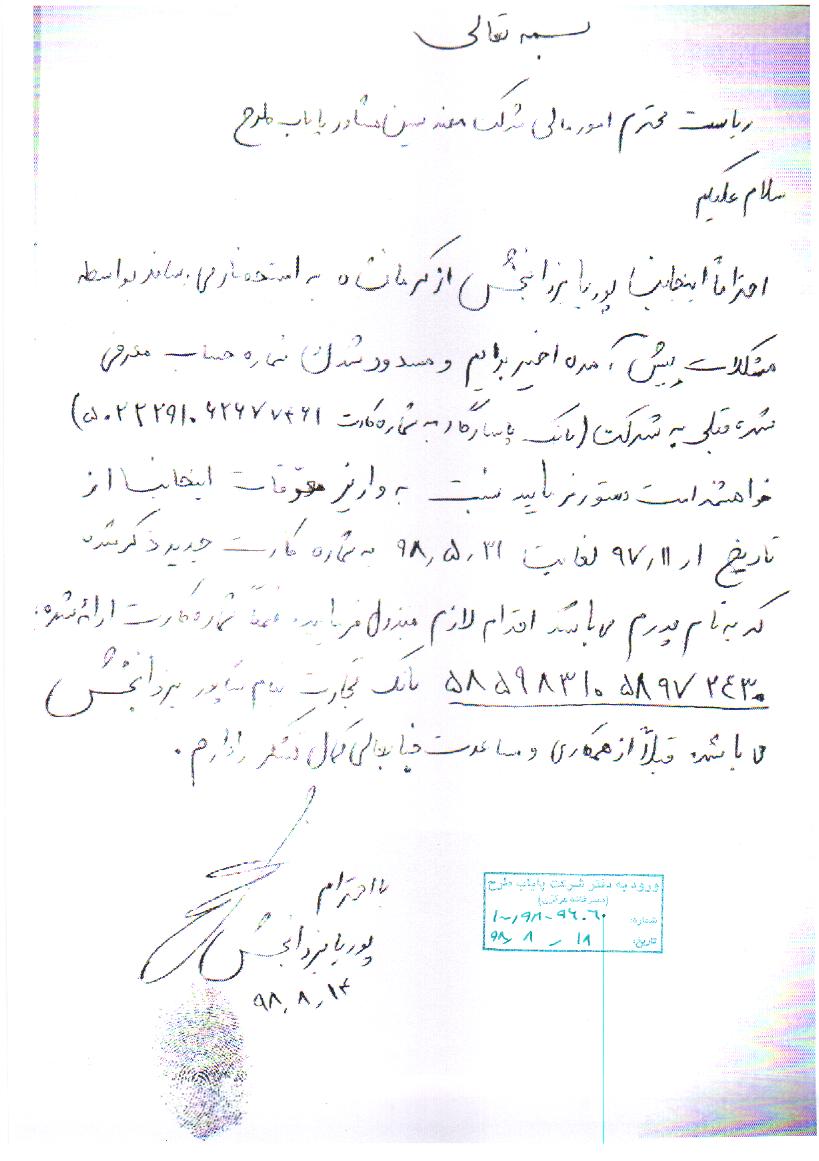 بسمه تعالی
ریاست محترم امور مالی شرکت مهندسین مشاور پایاب طرح
سلام علیکم
احتراماً اینجانب پوریا یزدانبخش از کرمانشاه به استحضار می رساند بواسطه
مشکلات پیش آمده اخیر برایم و مسدود شدن شماره حساب معرفی
شده قبلی به شرکت (بانک پاسارگاد به شماره کارت ۵۰۲۲۲۹۱۰۶۲۶۷۷۴۶۱)
خواهشمند است دستور فرمایید نسبت به واریز معوقات اینجانب از
تاریخ ۹۷٫۱۱٫۱ لغایت ۹۸٫۵٫۳۱ به شماره کارت جدید ذکر شده
که به نام پدرم می باشد اقدام لازم مبذول فرمایید. ضمناً شماره کارت ارائه شده،
۵۸۵۹۸۳۱۰۵۸۹۷۲۴۳۰ بانک تجارت بنام شاپور یزدانبخش
می باشد. قبلاً از همکاری و مساعدت جنابعالی کمال تشکر را دارم.
با احترام
پوریا یزدانبخش
۹۸٫۸٫۱۴
ورود به دفتر شرکت پایاب طرح
(دبیرخانه مرکزی)
شماره:
تاریخ: ۹۸٫۸٫۱۸